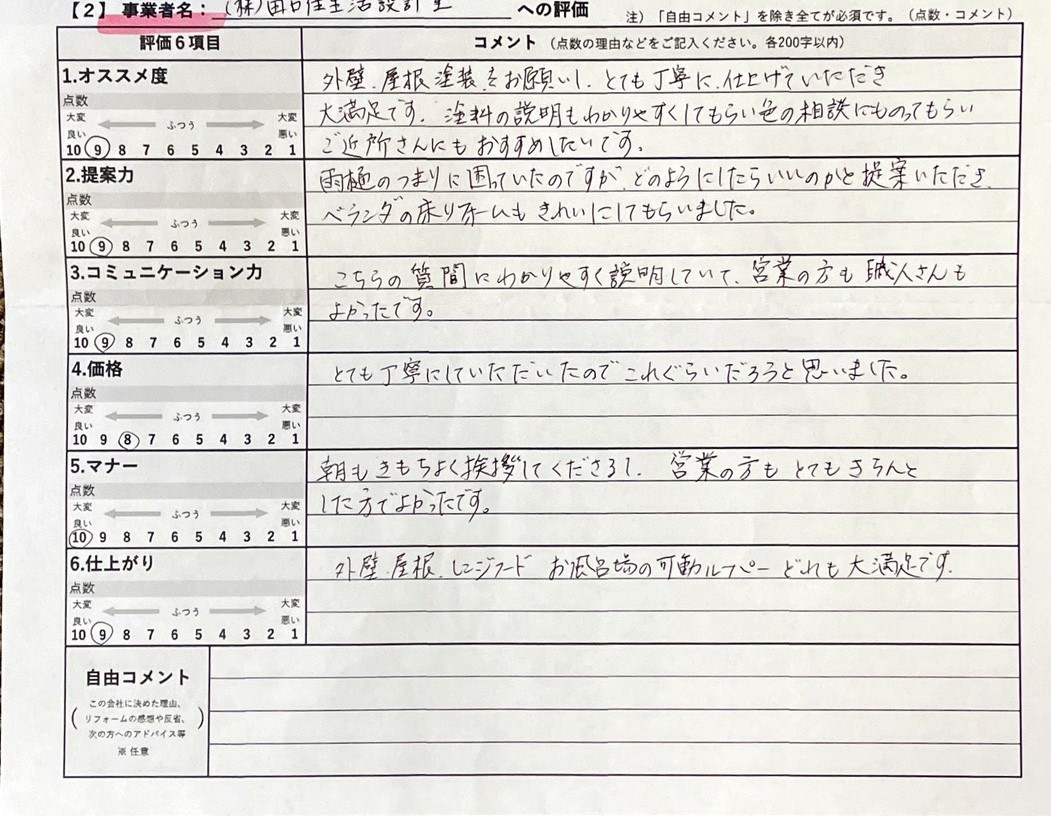 【2】 事業者名: (株)田口住生活設計室 への評価
注)「自由コメント」を除き全てが必須です。(点数・コメント)
評価6項目
コメント (点数の理由などをご記入ください。各200字以内)
1.オススメ度
点数
大変良い ふつう 大変悪い
10 9 8 7 6 5 4 3 2 1
外壁.屋根塗装をお願いし、とても丁寧に、仕上げていただき
大満足です。塗料の説明もわかりやすくしてもらい色の相談にものってもらい
ご近所さんにもおすすめしたいです。
2.提案力
点数
大変良い ふつう 大変悪い
10 9 8 7 6 5 4 3 2 1
雨樋のつまりに困っていたのですが、どのようにしたらいいのかと提案いただき、
ベランダの床リフォームもきれいにしてもらいました。
3.コミュニケーション力
点数
大変良い ふつう 大変悪い
10 9 8 7 6 5 4 3 2 1
こちらの質問にわかりやすく説明していて、営業の方も職人さんも
よかったです。
4.価格
点数
大変良い ふつう 大変悪い
10 9 8 7 6 5 4 3 2 1
とても丁寧にしていただいたのでこれぐらいだろうと思いました。
5.マナー
点数
大変良い ふつう 大変悪い
10 9 8 7 6 5 4 3 2 1
朝もきもちよく挨拶してくださるし、営業の方もとてもきちんと
した方でよかったです。
6.仕上がり
点数
大変良い ふつう 大変悪い
10 9 8 7 6 5 4 3 2 1
外壁.屋根.レンジフード お風呂場の可動ルーバー どれも大満足です。
自由コメント
(この会社に決めた理由、
リフォームの感想や反省、
次の方へのアドバイス等)
※任意